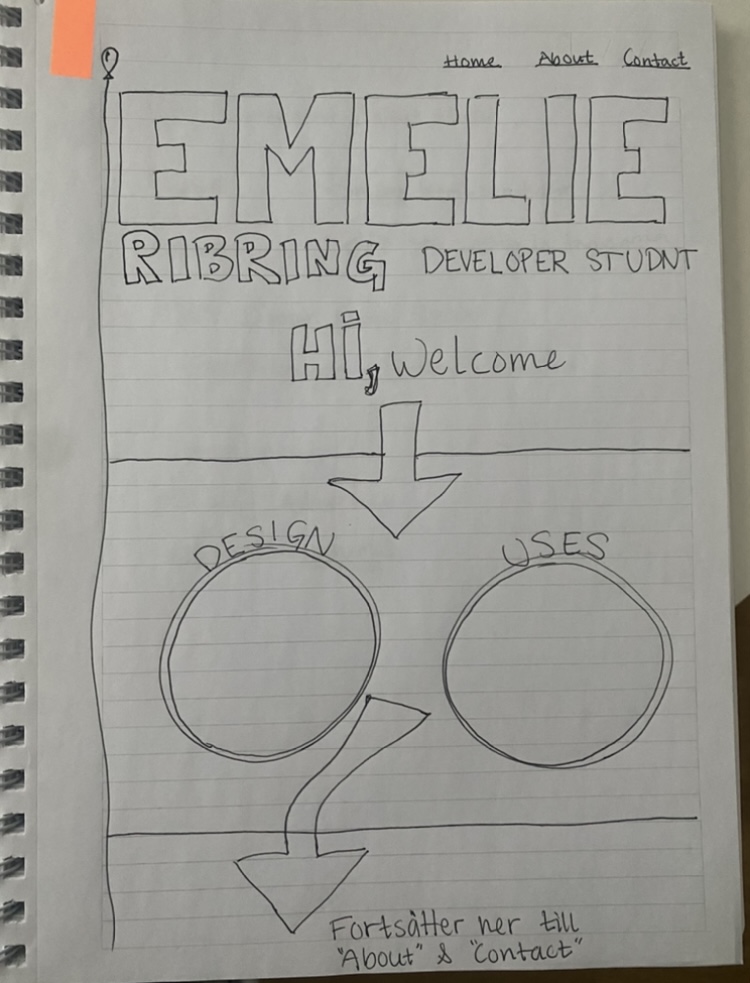 Home About Contact
EMELIE
RIBRING DEVELOPER STUDNT
Hi, welcome
DESIGN USES
Fortsätter ner till
"About" & "Contact"